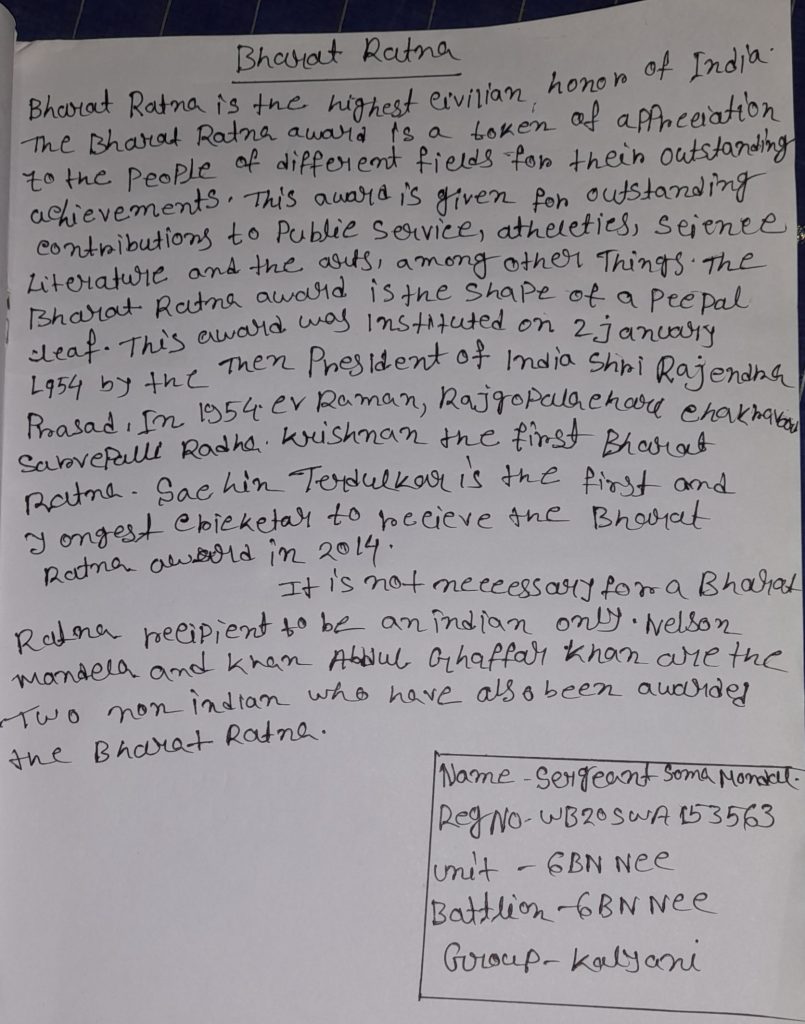 Bharat Ratna
Bharat Ratna is the highest civilian honor of India.
The Bharat Ratna award is a token of appreciation
to the people of different fields for their outstanding
achievements. This award is given for outstanding
contributions to Public Service, atheletics, Science
Literature and the arts, among other Things. The
Bharat Ratna award is the shape of a peepal
leaf. This award was Instituted on 2 january
1954 by the Then President of India Shri Rajendra
Prasad. In 1954 cv Raman, Rajgopalachari
Sarvepalli Radha. Krishnan the first Bharat
Ratna. Sachin Terdulkar is the first and
yongest cricketar to recieve the Bharat
Ratna award in 2014.
It is not neccessary for a Bharat
Ratna recipient to be an indian only. Nelson
Mandela and Khan Abdul Ghaffar Khan are the
Two non indian who have also been awarded
the Bharat Ratna.
Name - Sergeant Soma Mondal.
Reg No - WB20SWA153563
unit - 6BN NCC
Battlion - 6BN NCC
Group - Kalyani